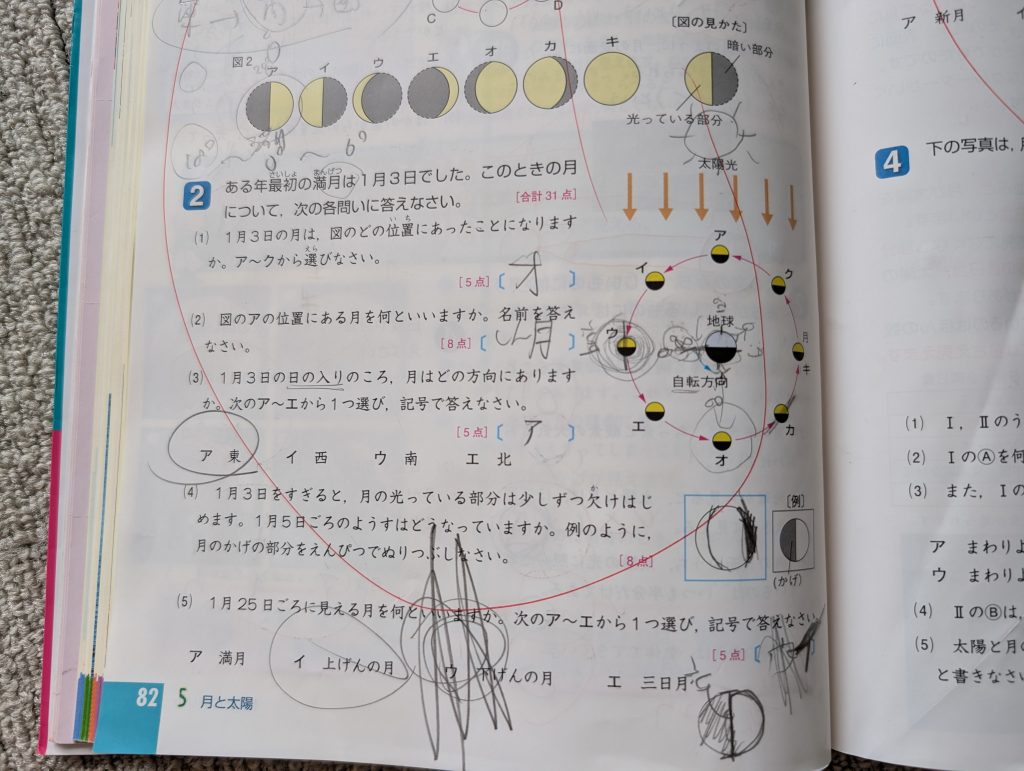 C
D
[図の見かた]
図2
ア イ ウ エ オ カ キ
暗い部分
光っている部分
太陽光
2 ある年最初の満月は1月3日でした。このときの月
について,次の各問いに答えなさい。 [合計31点]
(1) 1月3日の月は,図のどの位置にあったことになります
か。ア〜クから選びなさい。
[5点]〔 オ 〕
(2) 図のアの位置にある月を何といいますか。名前を答え
なさい。 [8点]〔 しん月 〕
(3) 1月3日の日の入りのころ,月はどの方向にあります
か。次のア〜エから1つ選び,記号で答えなさい。
[5点]〔 ア 〕
ア 東 イ 西 ウ 南 エ 北
ア
イ
ク
ウ
地球
月
キ
自転方向
エ
カ
オ
(4) 1月3日をすぎると,月の光っている部分は少しずつ欠けはじ
めます。1月5日ごろのようすはどうなっていますか。例のように,
月のかげの部分をえんぴつでぬりつぶしなさい。 [8点]
[例]
(かげ)
(5) 1月25日ごろに見える月を何といいますか。次のア〜エから1つ選び,記号で答えなさい。
[5点]〔
ア 満月 イ 上げんの月 ウ 下げんの月 エ 三日月
82 5 月と太陽
ア 新月
4 下の写真は,
(1) Ⅰ,Ⅱのう
(2) ⅠのⒶを何
(3) また,Ⅰの
ア まわりよ
ウ まわりよ
(4) ⅡのⒷは,
(5) 太陽と月の
と書きなさい